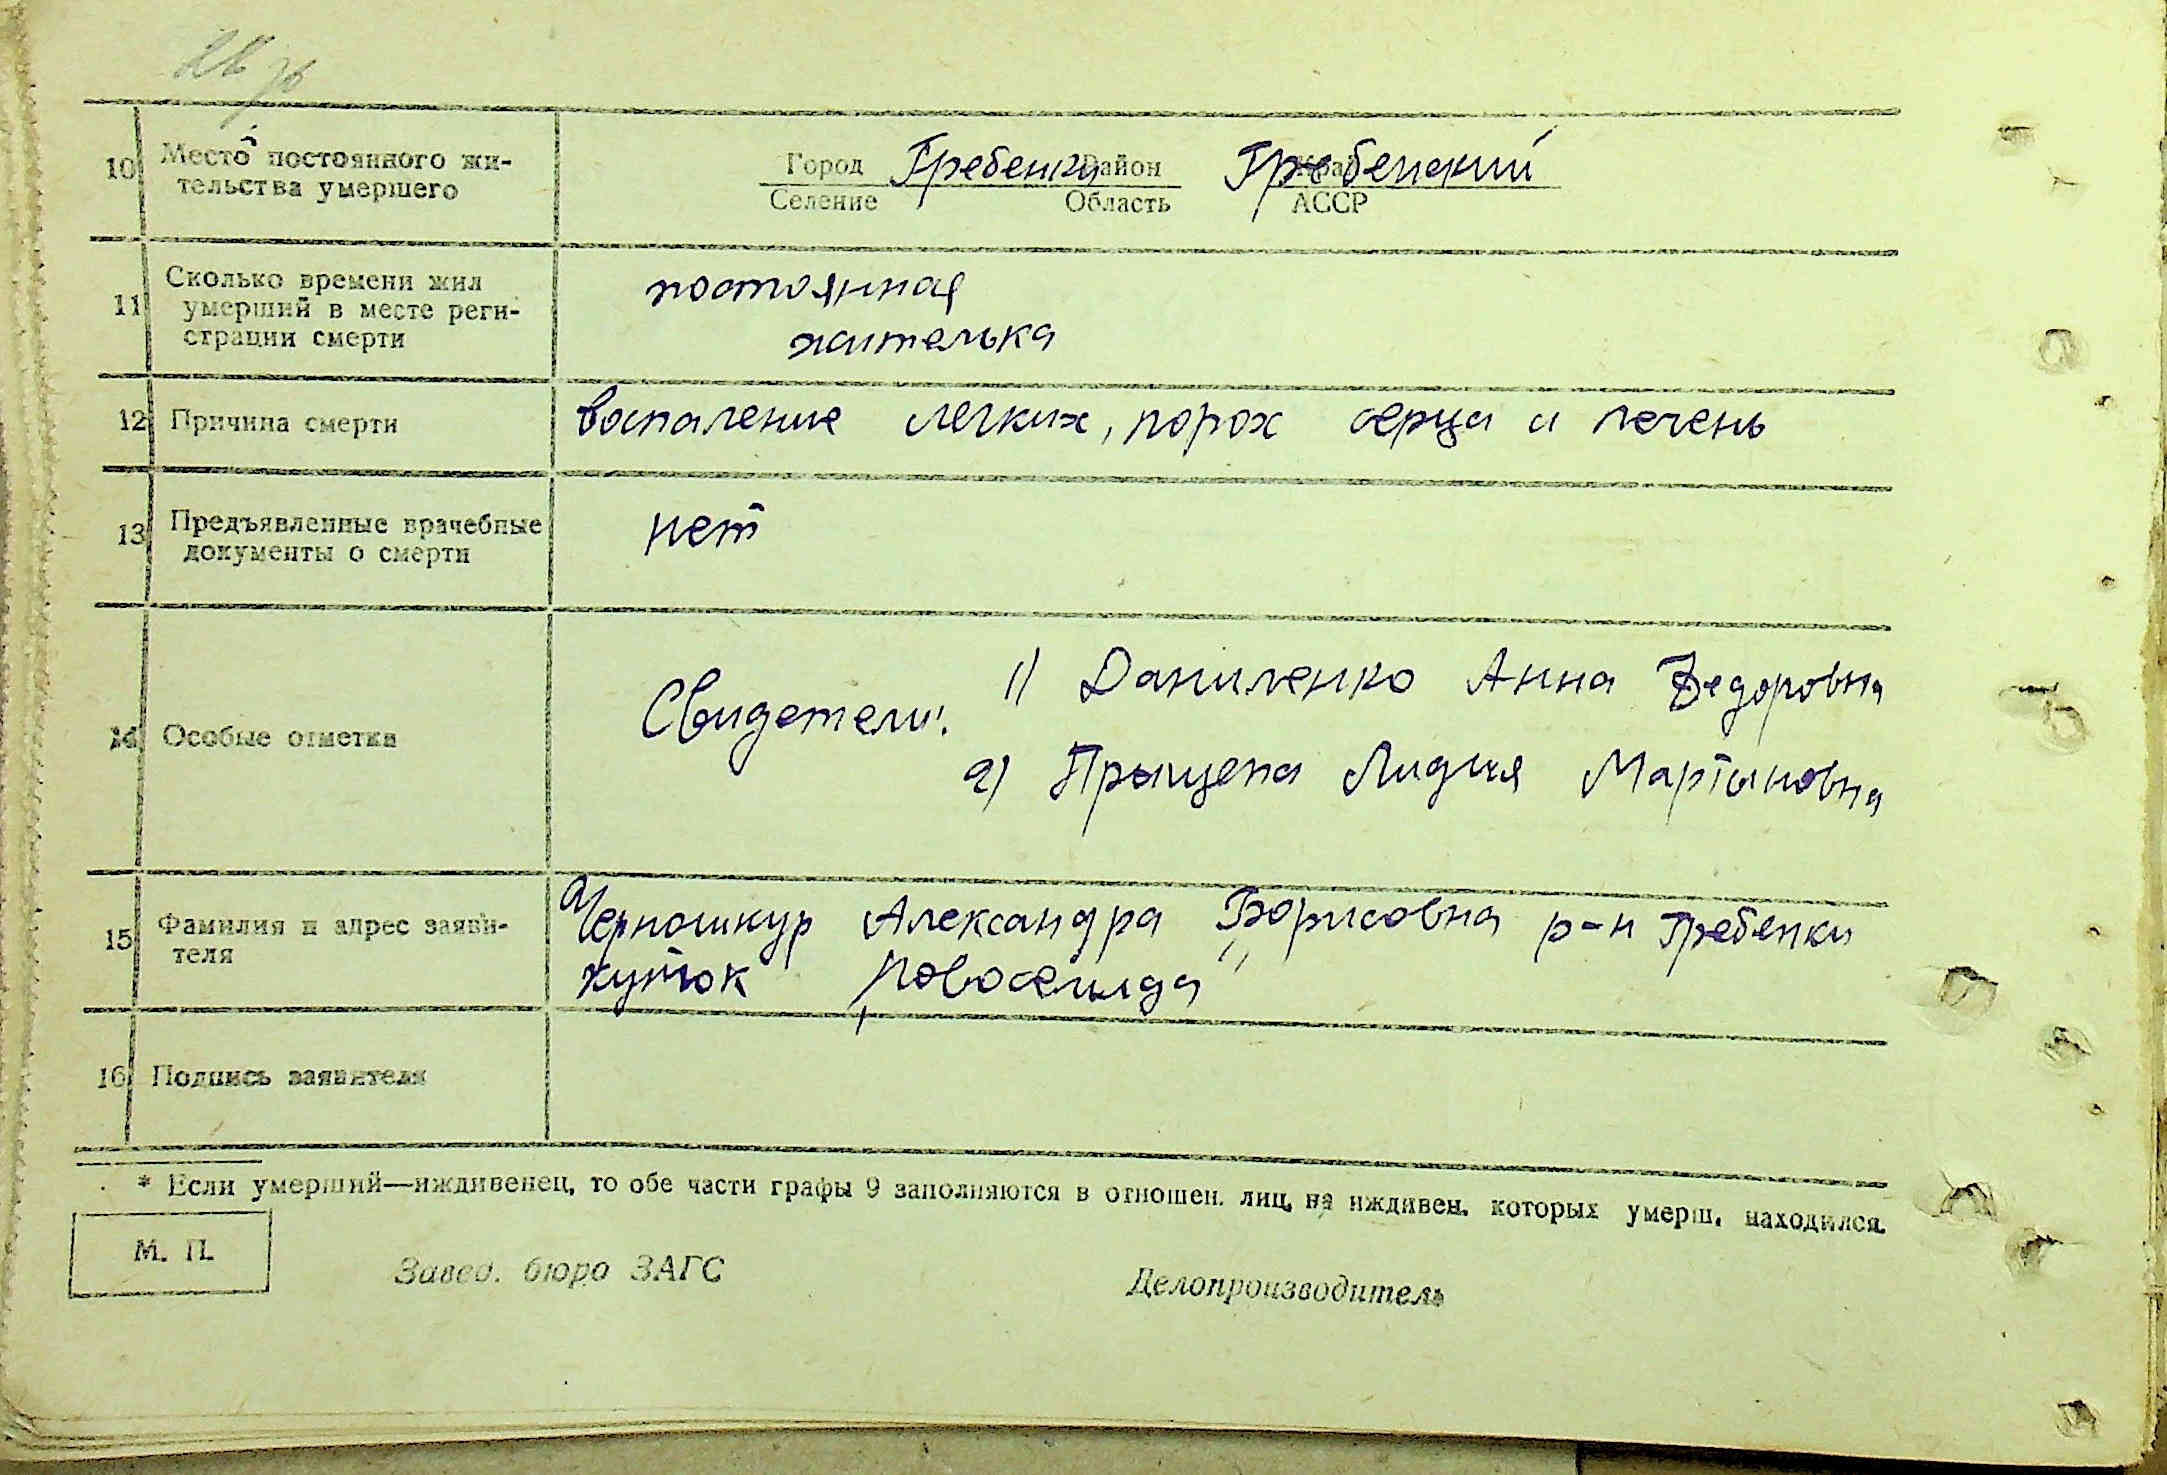 10 Место постоянного жи-
тельства умершего
Город Гребенки Район Гребенский
Селение Область АССР
11 Сколько времени жил
умерший в месте реги-
страции смерти
постоянная
жителька
12 Причина смерти
воспаление легких, порох серца и печень
13 Предъявленные врачебные
документы о смерти
нет
14 Особые отметки
Свидетели: 1) Даниленко Анна Федоровна
2) Прыщепа Лидия Мартыновна
15 Фамилия и адрес заяви-
теля
Черношкур Александра Борисовна р-н Гребенки
куток
16 Подпись заявителя
* Если умерший—иждивенец, то обе части графы 9 заполняются в отношен. лиц, на иждивен. которых умерш. находился.
М. П.
Завед. бюро ЗАГС Делопроизводитель